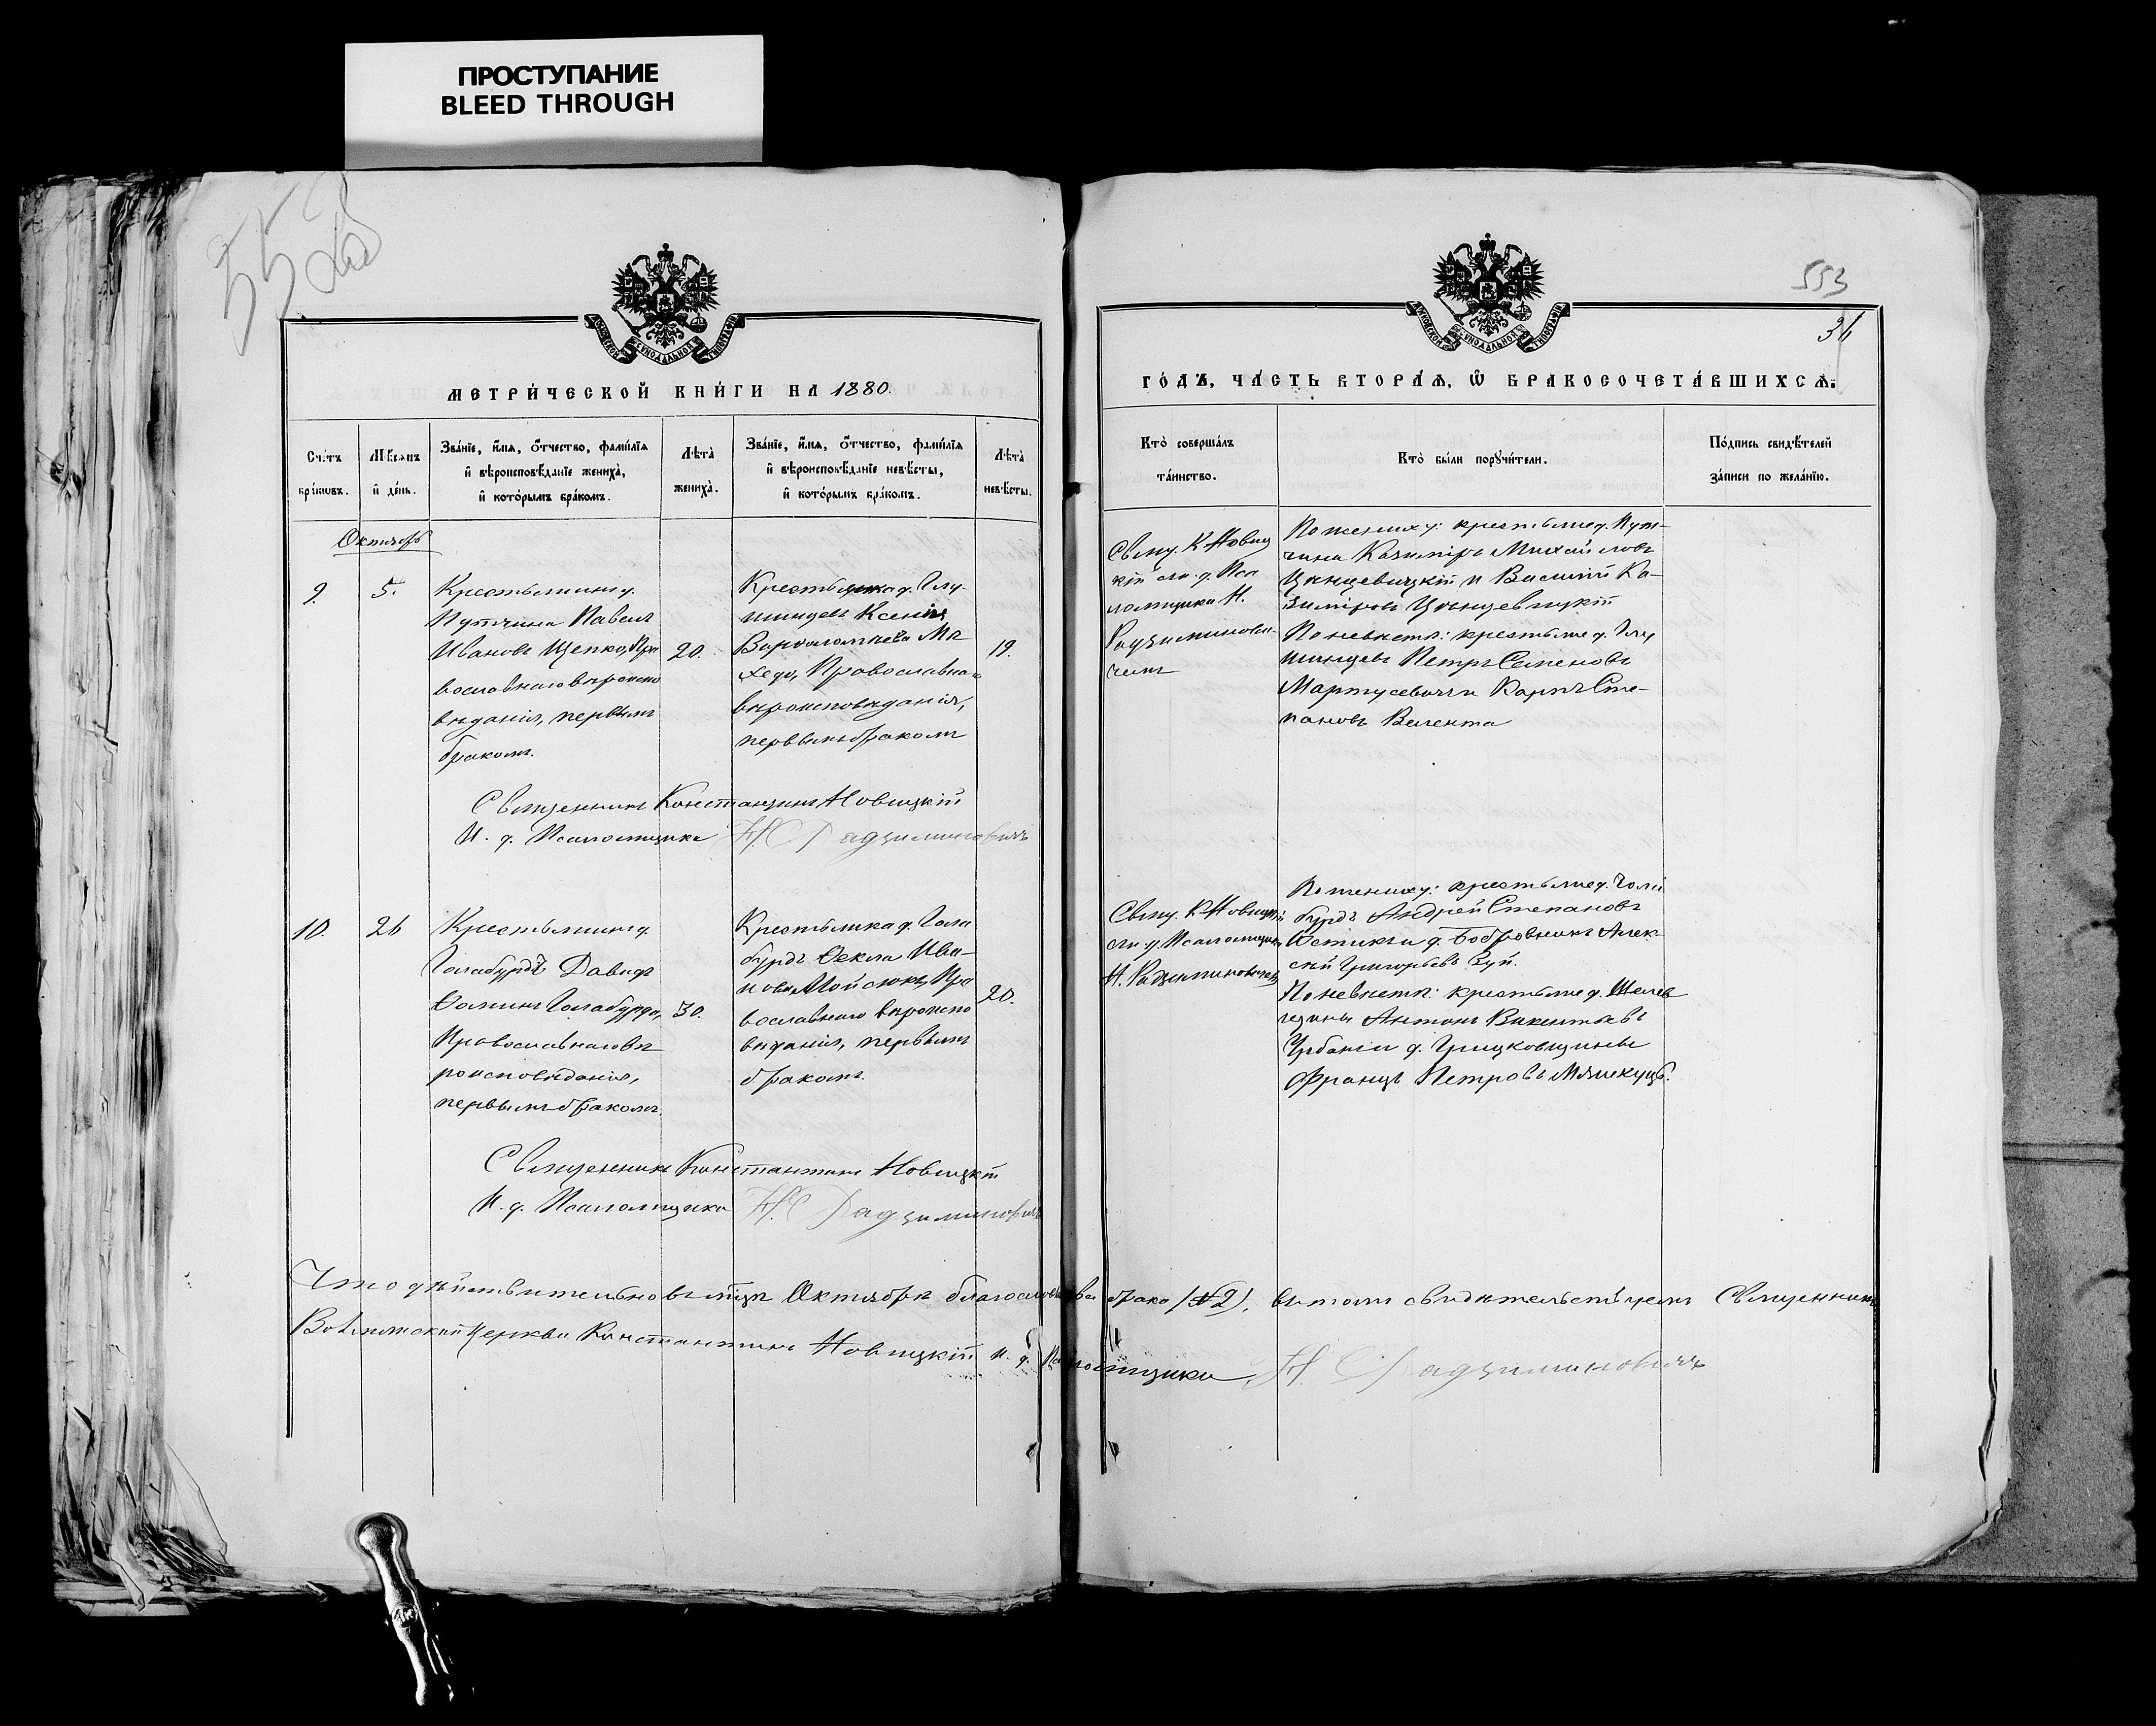 ПРОСТУПАНИЕ
BLEED THROUGH
553
36
МЕТРИ́ЧЕСКОЙ КНИ́ГИ НА 1880.
ГО́ДЪ, ЧА́СТЬ ВТОРА́Ѧ, Ѡ БРАКОСОЧЕТА́ВШИХСѦ.
Сче́тъ
бра́ковъ.
Мѣсѧцъ
и де́нь.
Зва́нїе, и́мѧ, ѻ́тчество, фами́лїѧ
и вѣроисповѣ́данїе жениха̀,
и кото́рымъ бра́комъ.
Лѣта̀
жениха̀.
Зва́нїе, и́мѧ, ѻ́тчество, фами́лїѧ
и вѣроисповѣ́данїе невѣ́сты,
и кото́рымъ бра́комъ.
Лѣта̀
невѣ́сты.
Кто̀ соверша́лъ
та́инство.
Кто̀ бы́ли порꙋчи́тели.
По́дпись свидѣ́телей
за́писи по жела́нїю.
Октябрь
9.
5.
Крестьянинъ д.
Путчина Павелъ
Ивановъ Щепко, Пра
вославнаго вѣроиспо
вѣданія, первымъ
бракомъ.
20.
Крестьянка д. Глу
шинцевъ Ксенія
Варѳоломѣева Ма
хедо, Православнаго
вѣроисповѣданія,
первымъ бракомъ
19.
Свящ. К. Новиц
кій съ и. д. Пса
ломщика Н.
Радзиминови
чемъ
По женихѣ: крестьяне д. Пут-
чина Казиміръ Михайловъ
и Василій Ка-
зиміровъ
По невѣстѣ: крестьяне д. Глу
шинцевъ Петръ Семеновъ
Мартусевичъ и Карпъ Сте-
пановъ Велента
Священникъ Константинъ Новицкій
И. д. Псаломщика Н. Радзиминовичъ
10.
26
Крестьянинъ д.
Голабурдъ Давидъ
Ѳоминъ Голабурда,
Православнаго вѣ
роисповѣданія,
первымъ бракомъ.
30.
Крестьянка д. Гола
бурдъ Ѳекла Ива-
нова Мойсюкъ, Пра
вославнаго вѣроиспо
вѣданія, первымъ
бракомъ.
20.
Свящ. К. Новицкій
съ и. д. Псаломщика
Н. Радзиминовичемъ
По женихѣ: крестьяне д. Гола
бурдъ Андрей Степановъ
Костикъ и д. Бобровникъ Алек-
сѣй Григорьевъ Зуй.
По невѣстѣ: крестьяне д.
Антонъ Викентьевъ
Урбанъ и д. Грицковщины
Францъ Петровъ
Священникъ Константинъ Новицкій
И. д. Псаломщика Н. Радзиминовичъ
Что дѣйствительно въ м-цѣ Октябрѣ два брака (№ 2), въ томъ свидѣтельствуемъ Священникъ
церкви Константинъ Новицкій и. д. Псаломщика, Н. Радзиминовичъ